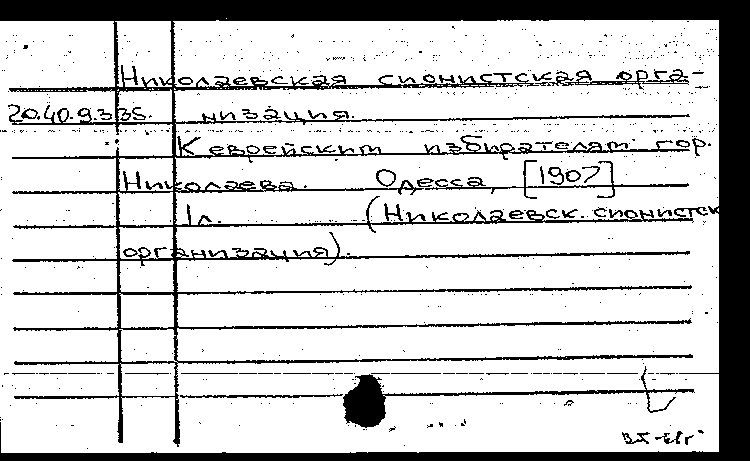 Николаевская сионистская орга-
20.40.9.335. низация.
К еврейским избирателям гор.
Николаева. Одесса, [1907]
1л. (Николаевск. сионистск
организация).